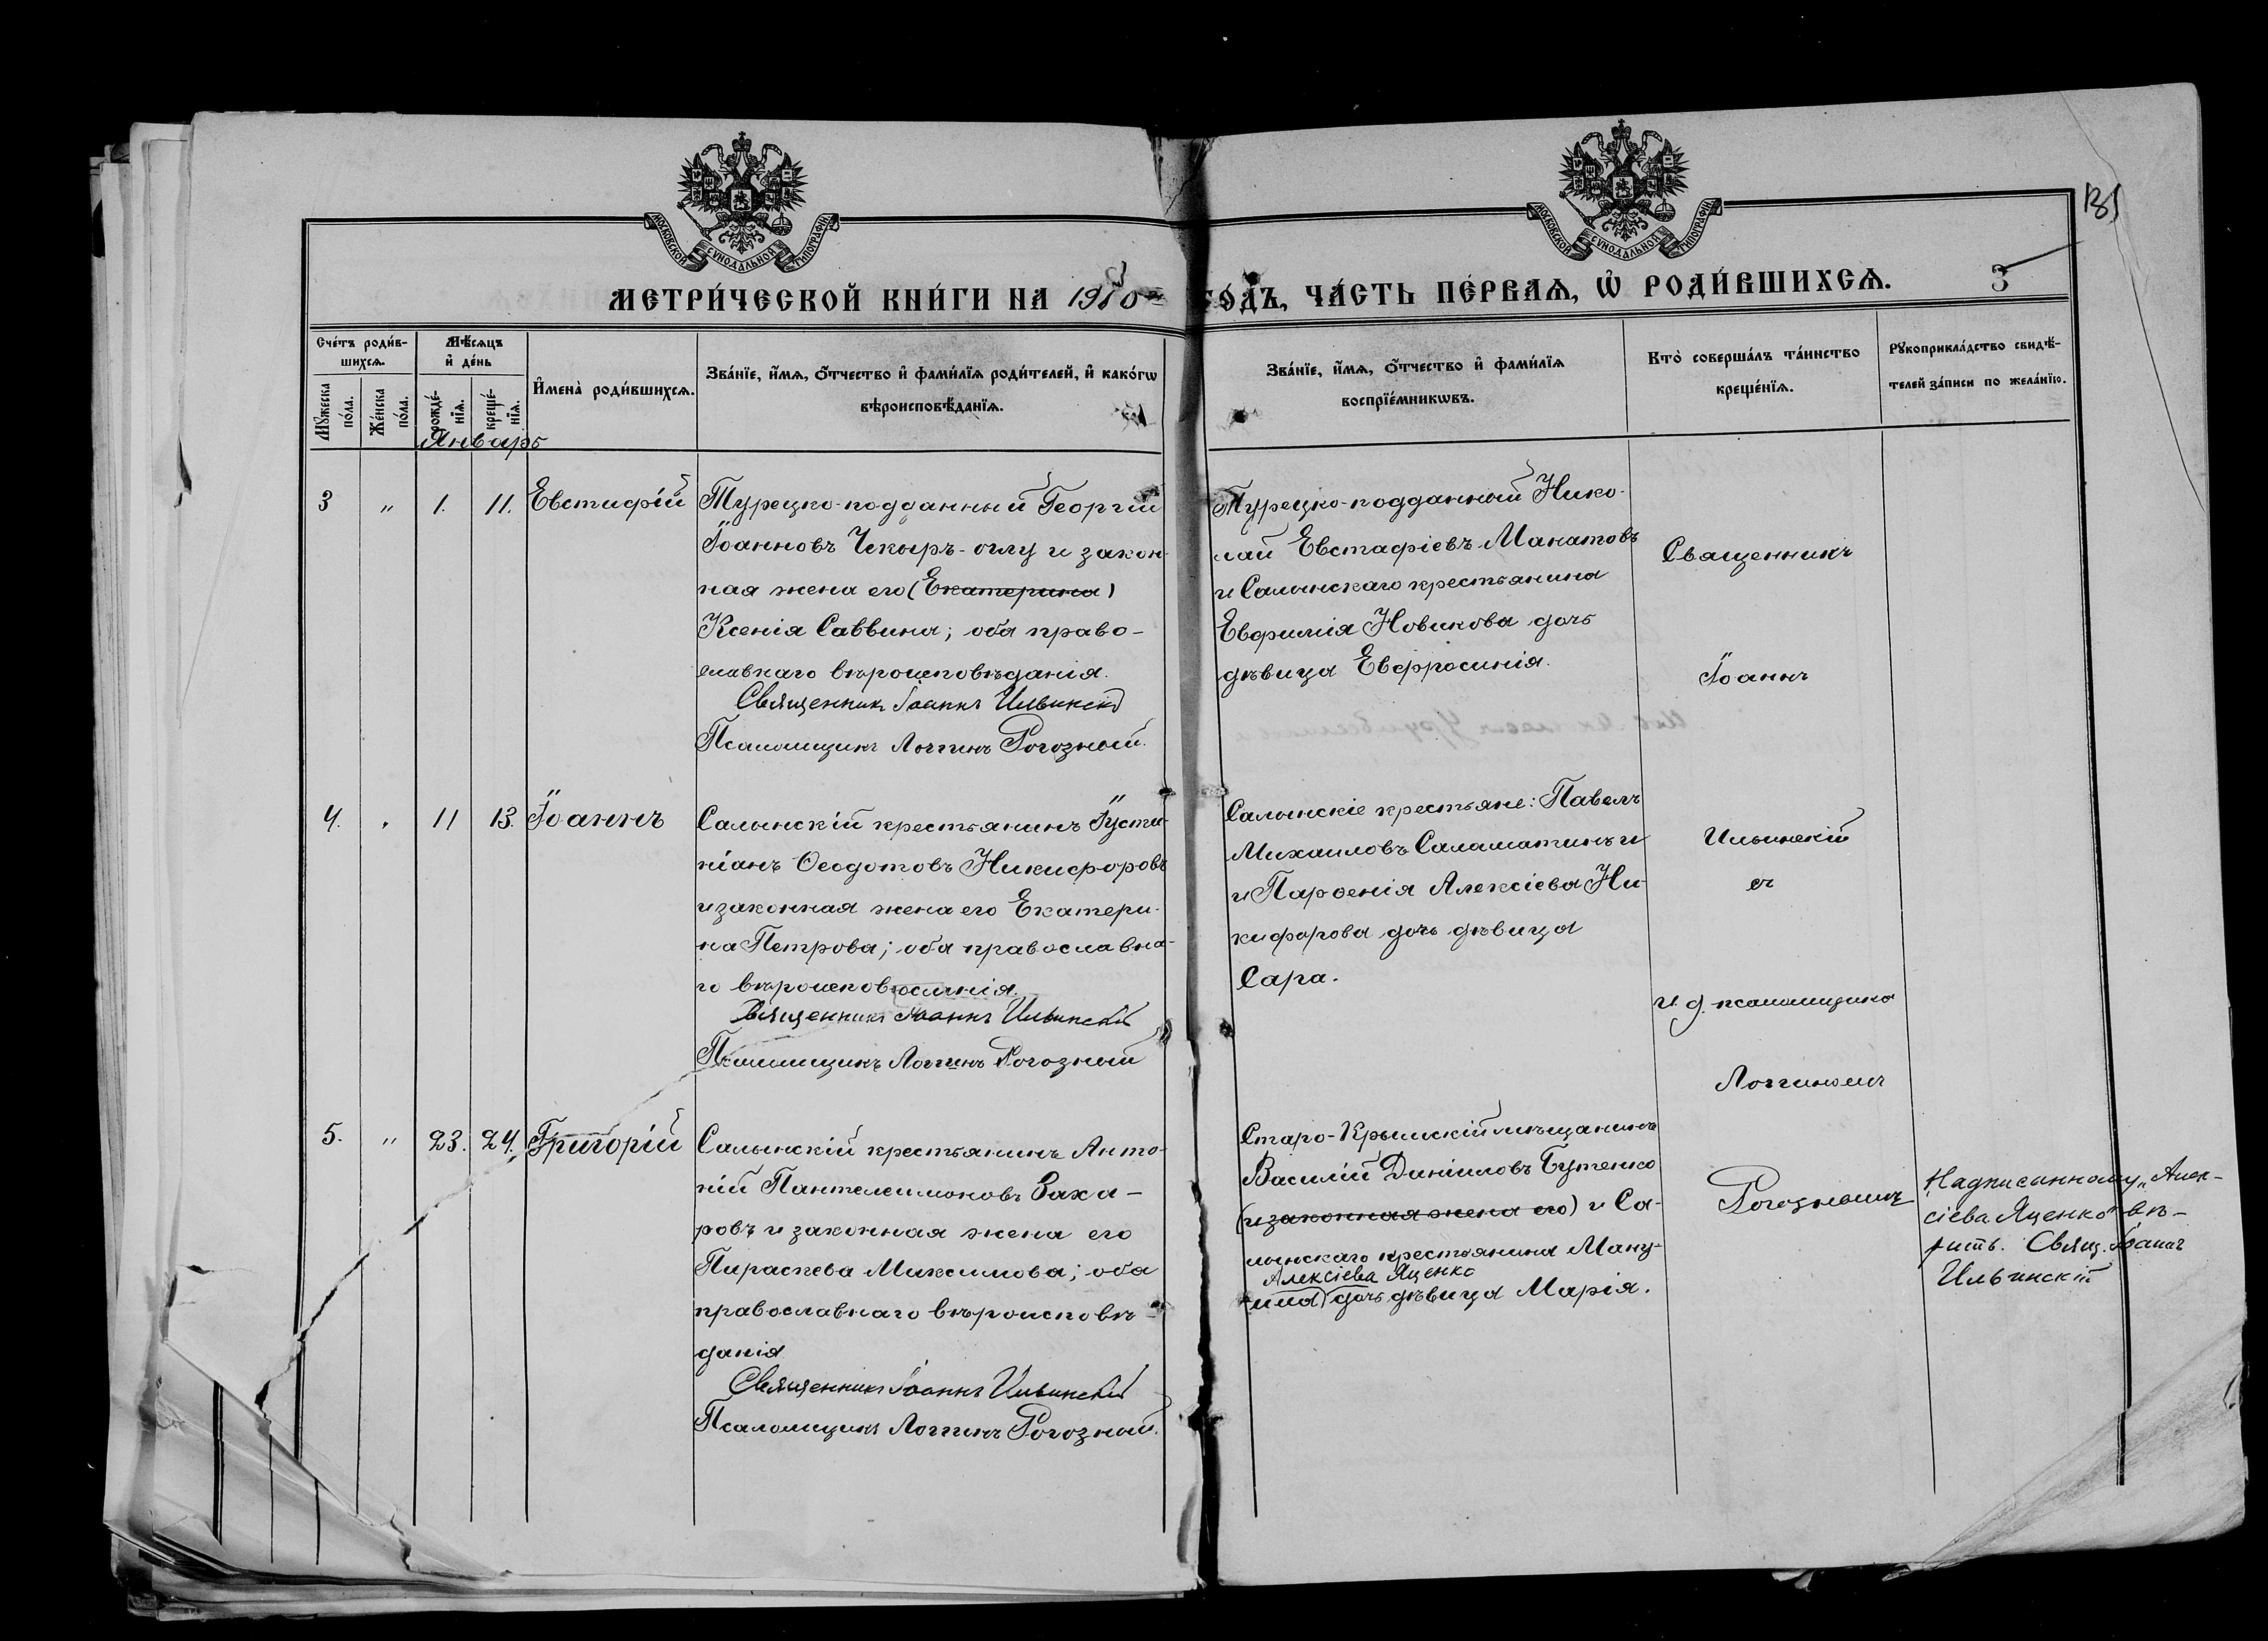 МОСКОВСКОЙ СУНОДАЛЬНОЙ ТИПОГРАФІИ
МОСКОВСКОЙ СУНОДАЛЬНОЙ ТИПОГРАФІИ
МЕТРИ́ЧЕСКОЙ КНИ́ГИ НА 1910 ГО́ДЪ, ЧА́СТЬ ПЕ́РВАѦ, Ѡ҆ РОДИ́ВШИХСѦ.
3
131
Сче́тъ роди́в-
шихсѧ.
Мꙋ́жеска по́ла.
Же́нска по́ла.
Мѣ́сѧцъ
и҆ де́нь
рожде́-нїѧ.
креще́-нїѧ.
И҆мена̀ роди́вшихсѧ.
Зва́нїе, и҆́мѧ, ѻ҆́тчество и҆ фами́лїѧ роди́телей, и҆ како́гѡ
вѣроисповѣ́данїѧ.
Зва́нїе, и҆́мѧ, ѻ҆́тчество и҆ фами́лїѧ
воспрїе́мникѡвъ.
Кто̀ соверша́лъ та́инство
креще́нїѧ.
Рꙋкоприкла́дство свидѣ́-
телей за́писи по жела́нїю.
Январь
3 " 1. 11. Евстафій
Турецко-подданный Георгій
Іоанновъ Чекыръ-оглу и закон-
ная жена его (Екатерина)
Ксенія Саввина; оба право-
славнаго вѣроисповѣданія.
Священникъ Іоаннъ Ильинскій
Псаломщикъ Логгинъ Рогозный.
Турецко-подданный Нико-
лай Евстафіевъ Манатовъ
и Салынскаго крестьянина
Евфимія Новикова дочь
дѣвица Евфросинія.
Священникъ
Іоаннъ
4. " 11 13. Іоаннъ
Салынскій крестьянинъ Іусти-
ніанъ Ѳеодотовъ Никифоровъ
и законная жена его Екатери-
на Петрова; оба православна-
го вѣроисповѣданія.
Священникъ Іоаннъ Ильинскій
Псаломщикъ Логгинъ Рогозный
Салынскіе крестьяне: Павелъ
Михаиловъ Саламатинъ и
и Парѳенія Алексіева Ни-
кифорова дочь дѣвица
Сара.
Ильинскій
съ
и. д. псаломщика
Логгиномъ
5. " 23. 24. Григорій
Салынскій крестьянинъ Анто-
ній Пантелеимоновъ Заха-
ровъ и законная жена его
Параскева Максимова; оба
православнаго вѣроисповѣ-
данія
Священникъ Іоаннъ Ильинскій
Псаломщикъ Логгинъ Рогозный.
Старо-Крымскій мѣщанинъ
Василій Даніиловъ Бутенко
(и законная жена его) и Са-
лынскаго крестьянина Ману-
Алексіева Яценко
ила) дочь дѣвица Марія.
Рогознымъ
Надписанному „Алек-
сіева Яценко" вѣ-
рить. Свящ. Іоаннъ
Ильинскій